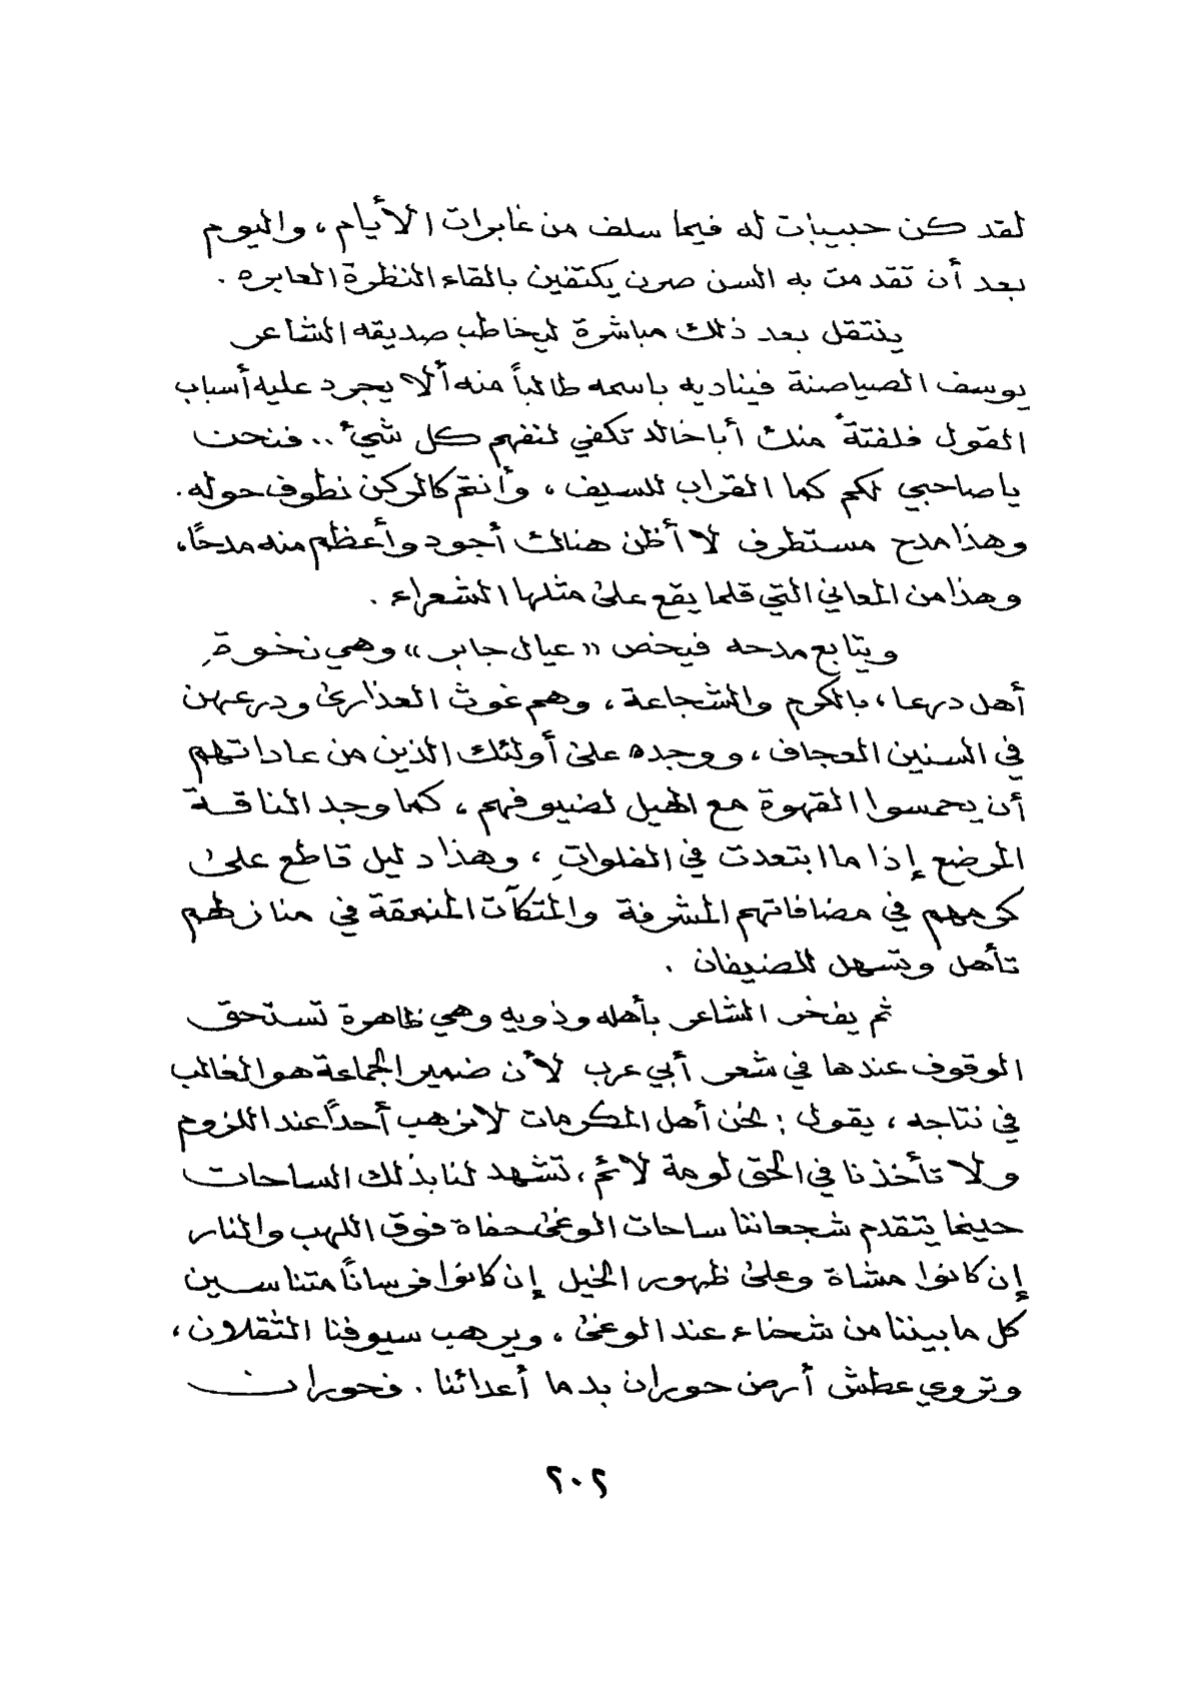 لقد كن حبيبات له فيما سلف من غابرات الأيام ، واليوم
بعد أن تقدمت به السن صرن يكتفين بالقاء النظرة العابره .
ينتقل بعد ذلك مباشرة ليخاطب صديقه الشاعر
يوسف الصياصنة فيناديه باسمه طالباً منه ألا يجرد عليه أسباب
القول فلفتةً منك أبا خالد تكفي لنفهم كل شيءٍ .. فنحن
يا صاحبي لكم كما القراب للسيف ، وأنتم كالركن نطوف حوله .
وهذا مدح مستطرف لا أظن هناك أجود وأعظم منه مدحاً ،
وهذا من المعاني التي قلما يقع على مثلها الشعراء .
ويتابع مدحه فيخص « عيال جابر » وهي نخوةِ
أهل درعا ، بالكرم والشجاعة ، وهم غوث العذارى ودرعهن
في السنين العجاف ، ووجده على أولئك الذين من عاداتهم
أن يحمسوا القهوة مع الهيل لضيوفهم ، كما وجد الناقة
المرضع إذا ما ابتعدت في الفلواتِ ، وهذا دليل قاطع على
كرمهم في مضافاتهم المشرفة والمتكآت المنمقة في منازلهم
تأهل وتسهل للضيفان .
ثم يفخر الشاعر بأهله وذويه وهي ظاهرة تستحق
الوقوف عندها في شعر أبي عرب لأن ضمير الجماعة هو الغالب
في نتاجه ، يقول : نحن أهل المكرمات لا نرهب أحداً عند اللزوم
ولا تأخذنا في الحق لومة لائم ، تشهد لنا بذلك الساحات
حينما يتقدم شجعاننا ساحات الوغى حفاة فوق اللهب والنار
إن كانوا مشاة وعلى ظهور الخيل إن كانوا فرساناً متناسين
كل ما بيننا من شحناء عند الوغى ، ويرهب سيوفنا الثقلان ،
وتروي عطش أرض حوران بدما أعدائنا . فحوران
٢٠٢